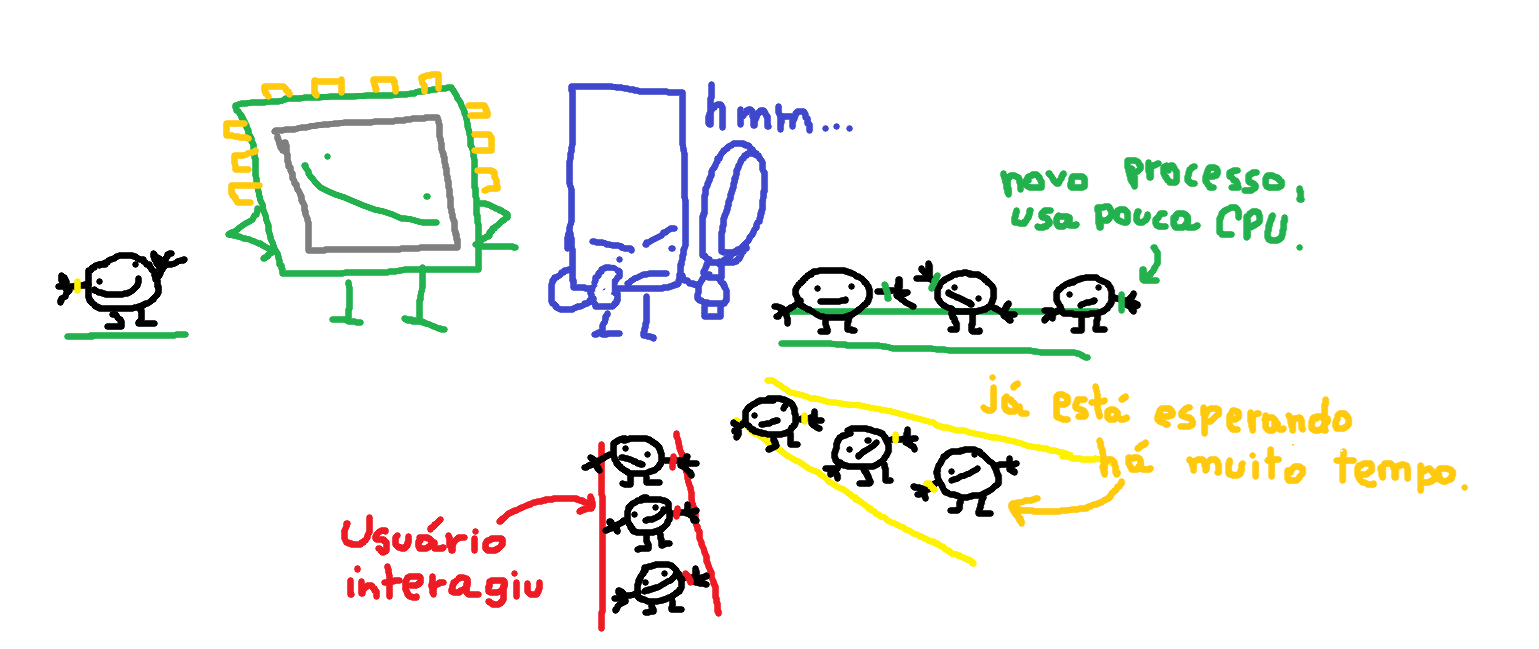 hmm...
novo processo,
usa pouca CPU.
já está esperando
há muito tempo.
Usuário
interagiu